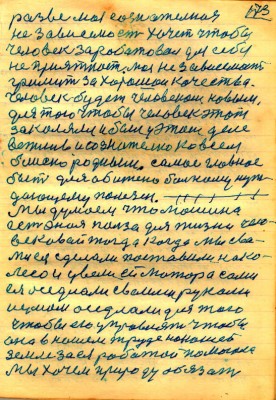 173
разве моя сознательная
не зависемост хочет чтобы
человек заработовал для себя
не приятност. моя не зависемост
за хорошои качества.
человек будет человеком новым,
для того чтобы человек этот
закалял и был у этом деле
вежлив и сознателно ко всем
близко родным, самое главное
быт для обижено
полезен.
Мы думаем что машина
есть оная полза для жизни чело-
вековаи тогда когда мы сва-
ми ее сделали поставили на ко-
лесо и у вели ей мотора сами
ея оседлали своими руками
и умом оседлали для того
чтобы его управлять чтобы
она в нашем труде на нашеи
земле заея работаи помогла
мы хочем природу обязат